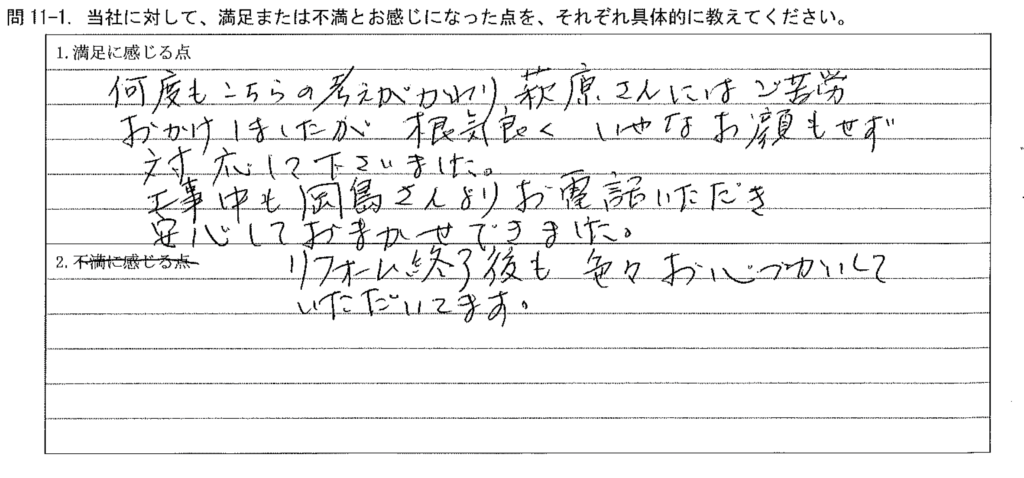 問 11-1. 当社に対して、満足または不満とお感じになった点を、それぞれ具体的に教えてください。
1. 満足に感じる点
何度もこちらの考えがかわり 萩原さんにはご苦労
おかけしましたが 根気良く いやなお顔もせず
対応して下さいました。
工事中も岡島さんよりお電話いただき
安心しておまかせできました。
2. 不満に感じる点
リフォーム終了後も 色々お心づかいして
いただいてます。